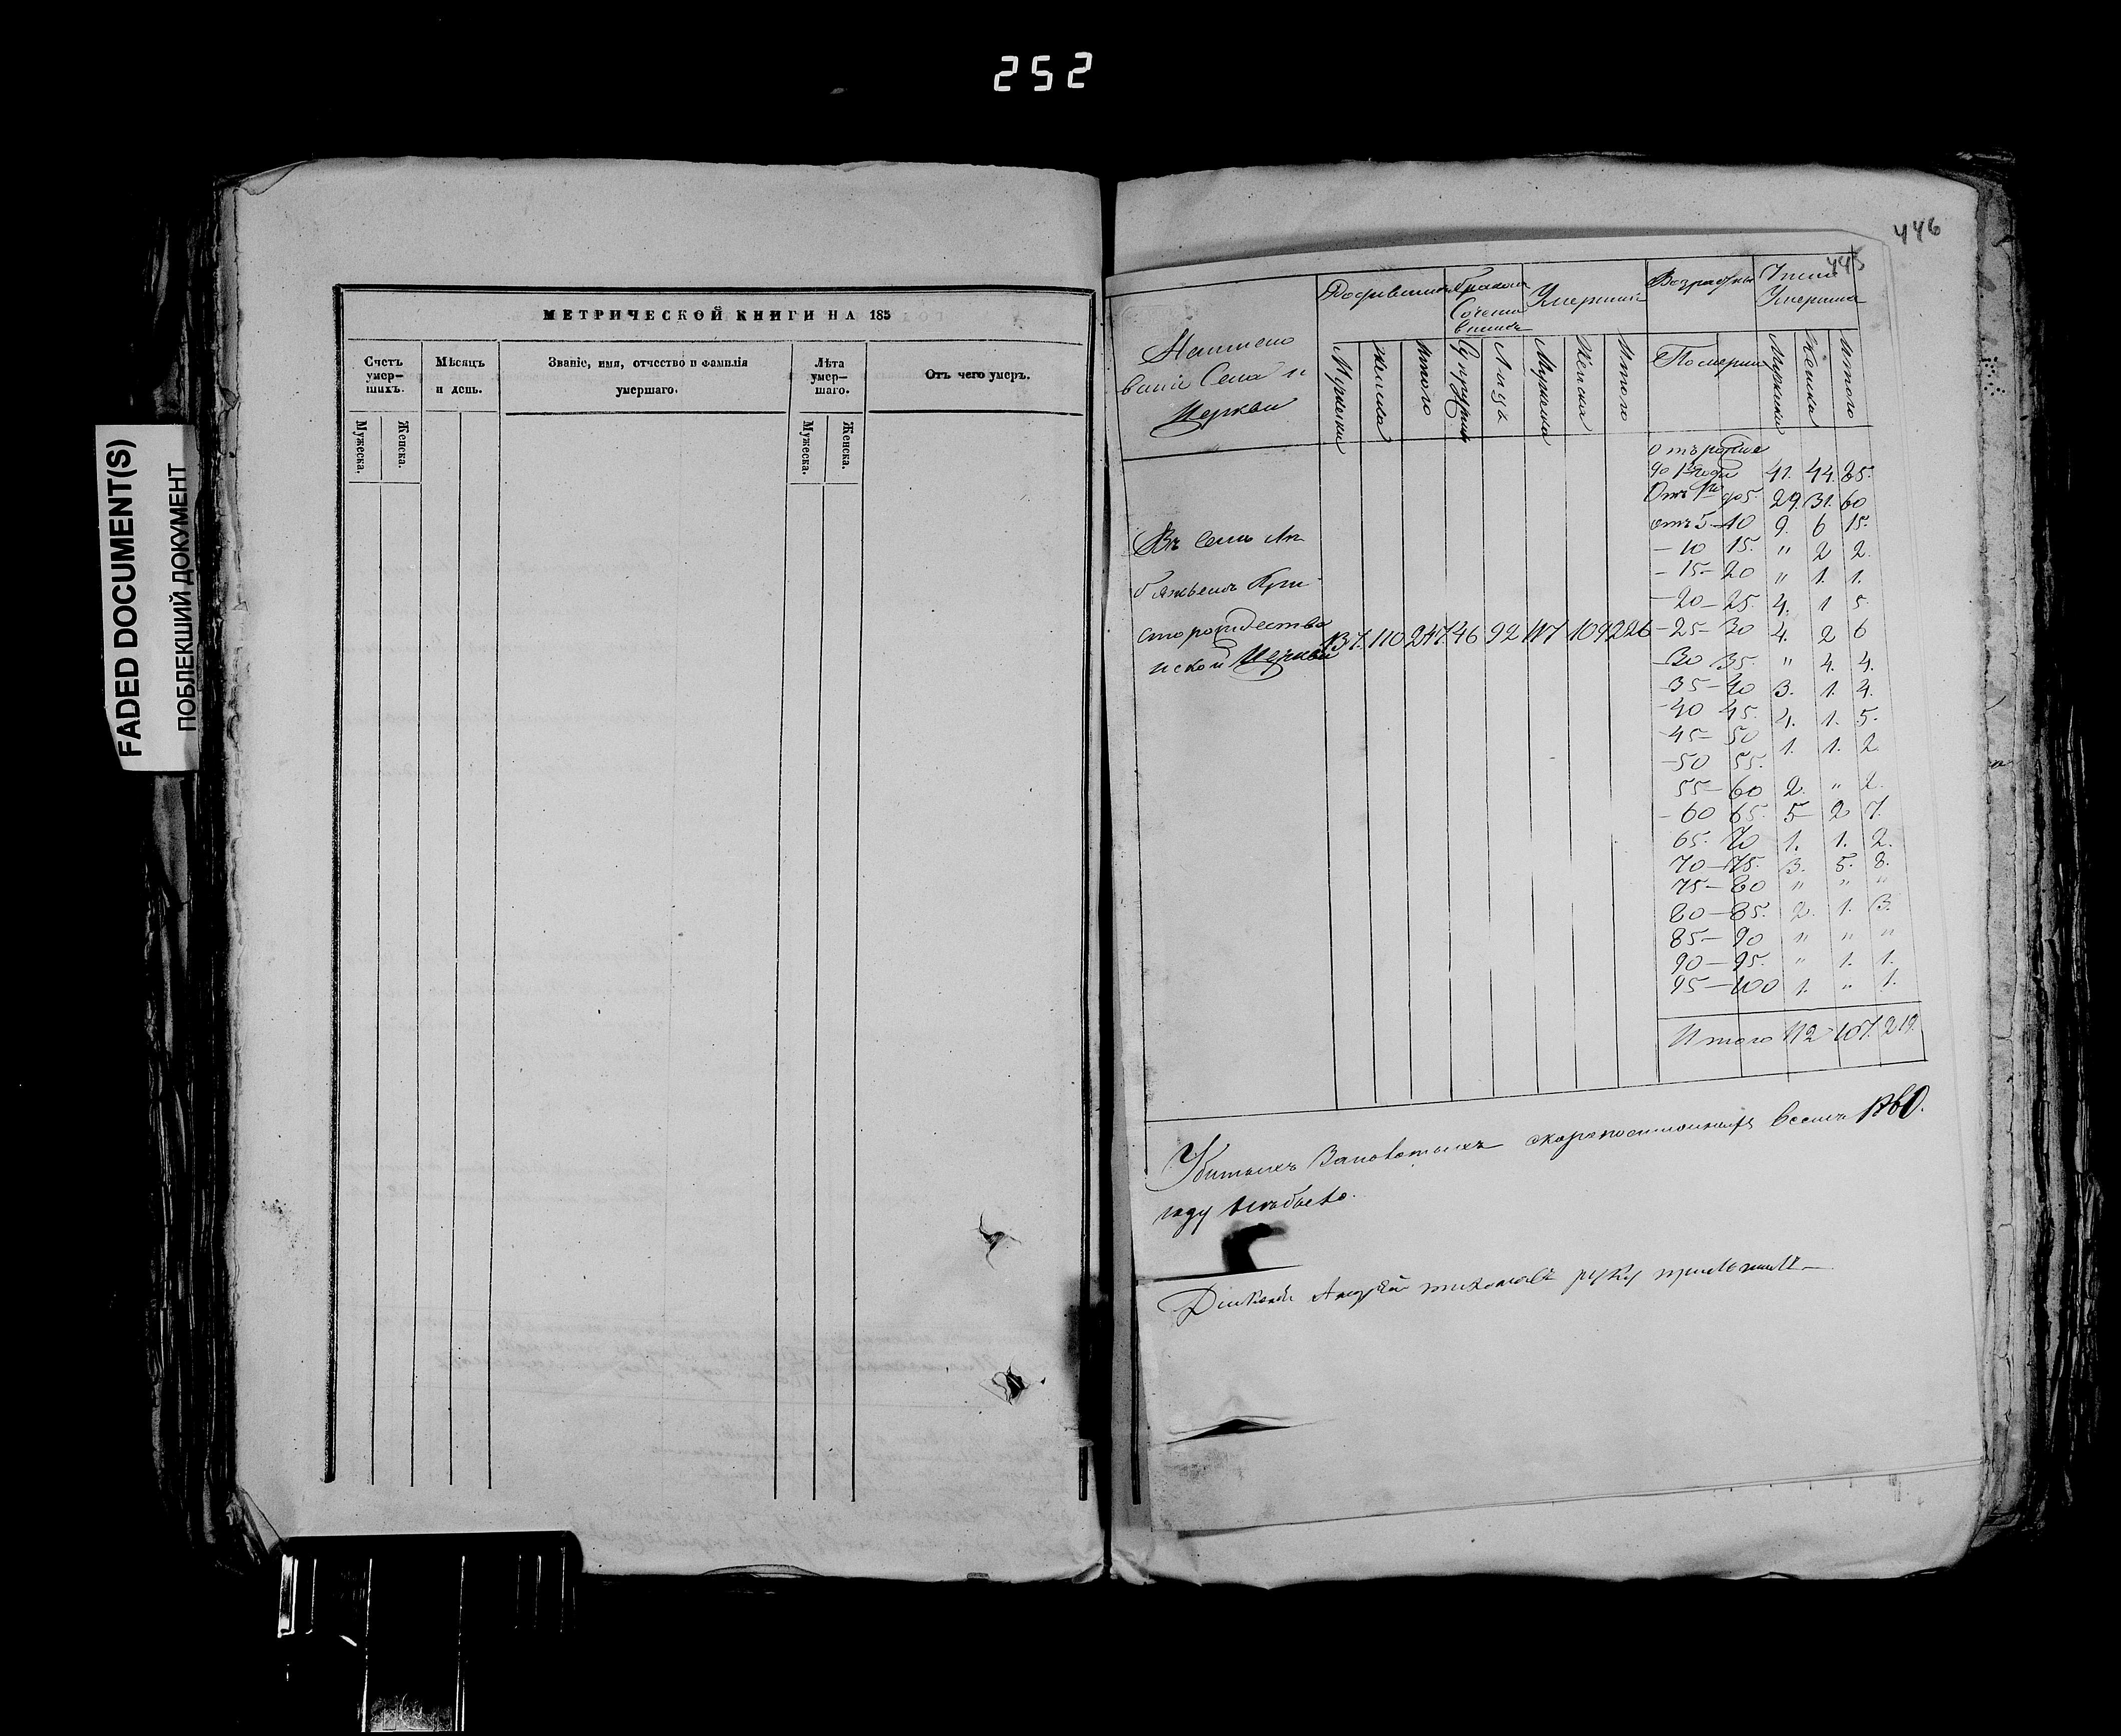 252
FADED DOCUMENT(S)
ПОБЛЕКШИЙ ДОКУМЕНТ
МЕТРИЧЕСКОЙ КНИГИ НА 185
Счетъ умер-шихъ.
Мѣсяцъ и день.
Званіе, имя, отчество и фамилія умершаго.
Лѣта умер-шаго.
Отъ чего умеръ.
Мужеска.
Женска.
Мужеска.
Женска.
446
445
Наимено
ваніе Села и
Церкви
Родившихся
Бракомъ
Сочета
вшихся
Умершихъ
Возрасты
Число
Умершихъ
Мужеска
Женска
Итого
Супружествъ
Лицъ
Мужеска
Женска
Итого
Померших
Мужеска
Женска
Итого
Отъ рожде
до 1 года 41. 44. 85.
Отъ 1го до 5. 29. 31. 60
отъ 5-10 9. 6 15.
- 10 15. " 2 2.
- 15-20 " 1. 1.
- 20-25. 4. 1 5.
- 25-30 4. 2 6
- 30 35. " 4. 4.
- 35-40 3. 1. 4.
- 40 45. 4. 1. 5.
45-50 1. 1. 2.
- 50 55.
55-60 2. " 2.
- 60 65. 5 2 7.
65. 70 1. 1. 2.
70-75. 3. 5. 8.
75-80 " " "
80-85. 2. 1. 3.
85-90 " " "
90-95. " 1. 1.
95-100 1. " 1.
Итого 112 107. 219.
Въ Селѣ
Хри
сторождестве
нской Церкви 137. 110 247. 46 92 117 109 226
Убитыхъ скоропостижно 1860.
году небыло.
Дьяконъ Андрей руку приложилъ